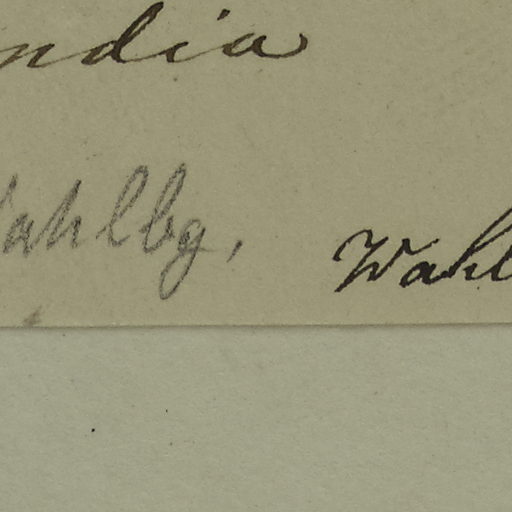 ndia
ahlbg, Wahl